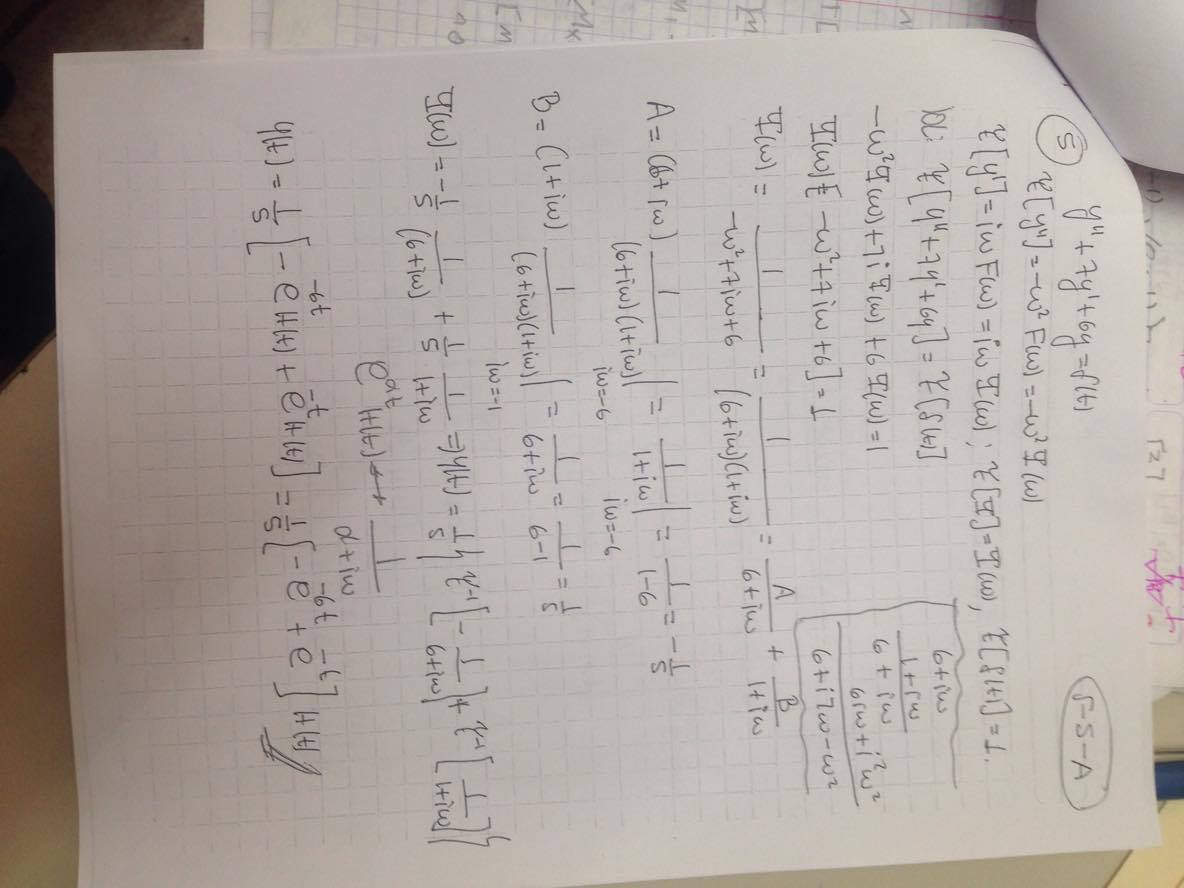 5-5-A
5
y''+7y'+6y=δ(t)
ℱ[y'']=-ω² F(ω)=-ω² Y(ω)
ℱ[y']=iω F(ω)=iω Y(ω); ℱ[Y]=Y(ω), ℱ[δ(t)]=1.
ℱ[y''+7y'+6y]=ℱ[δ(t)]
-ω²Y(ω)+7i Y(ω)+6 Y(ω)=1
Y(ω)[-ω²+7iω+6]=1
6+iω
1+iω
6+iω
6iω+i²ω²
6+i7ω-ω²
Y(ω)= 1/(-ω²+7iω+6) = 1/((6+iω)(1+iω)) = A/(6+iω) + B/(1+iω)
A=(6+iω) 1/((6+iω)(1+iω))| iω=-6 = 1/(1+iω)| iω=-6 = 1/(1-6) = -1/5
B=(1+iω) 1/((6+iω)(1+iω))| iω=-1 = 1/(6+iω) = 1/(6-1) = 1/5
Y(ω)=-1/5 1/(6+iω) + 1/5 1/(1+iω) ⇒ y(t)=1/5 {ℱ⁻¹[-1/(6+iω)]+ℱ⁻¹[1/(1+iω)]}
e^αt H(t) ↔ 1/(α+iω)
y(t)=1/5[-e^-6t H(t)+e^-t H(t)]=1/5[-e^-6t+e^-t]H(t)